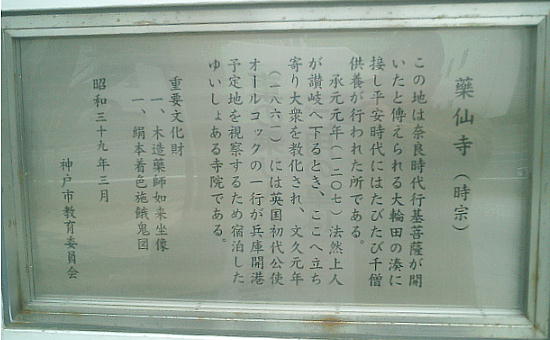 薬仙寺（時宗）
この地は奈良時代行基菩薩が開
いたと傳えられる大輪田の湊に
接し平安時代にはたびたび千僧
供養が行われた所である。
承元元年（一二〇七）法然上人
が讃岐へ下るとき、ここへ立ち
寄り大衆を教化され、文久元年
（一八六一）には英国初代公使
オールコックの一行が兵庫開港
予定地を視察するため宿泊した
ゆいしょある寺院である。
重要文化財
一、木造薬師如来坐像
一、絹本着色施餓鬼図
昭和三十九年三月
神戸市教育委員会